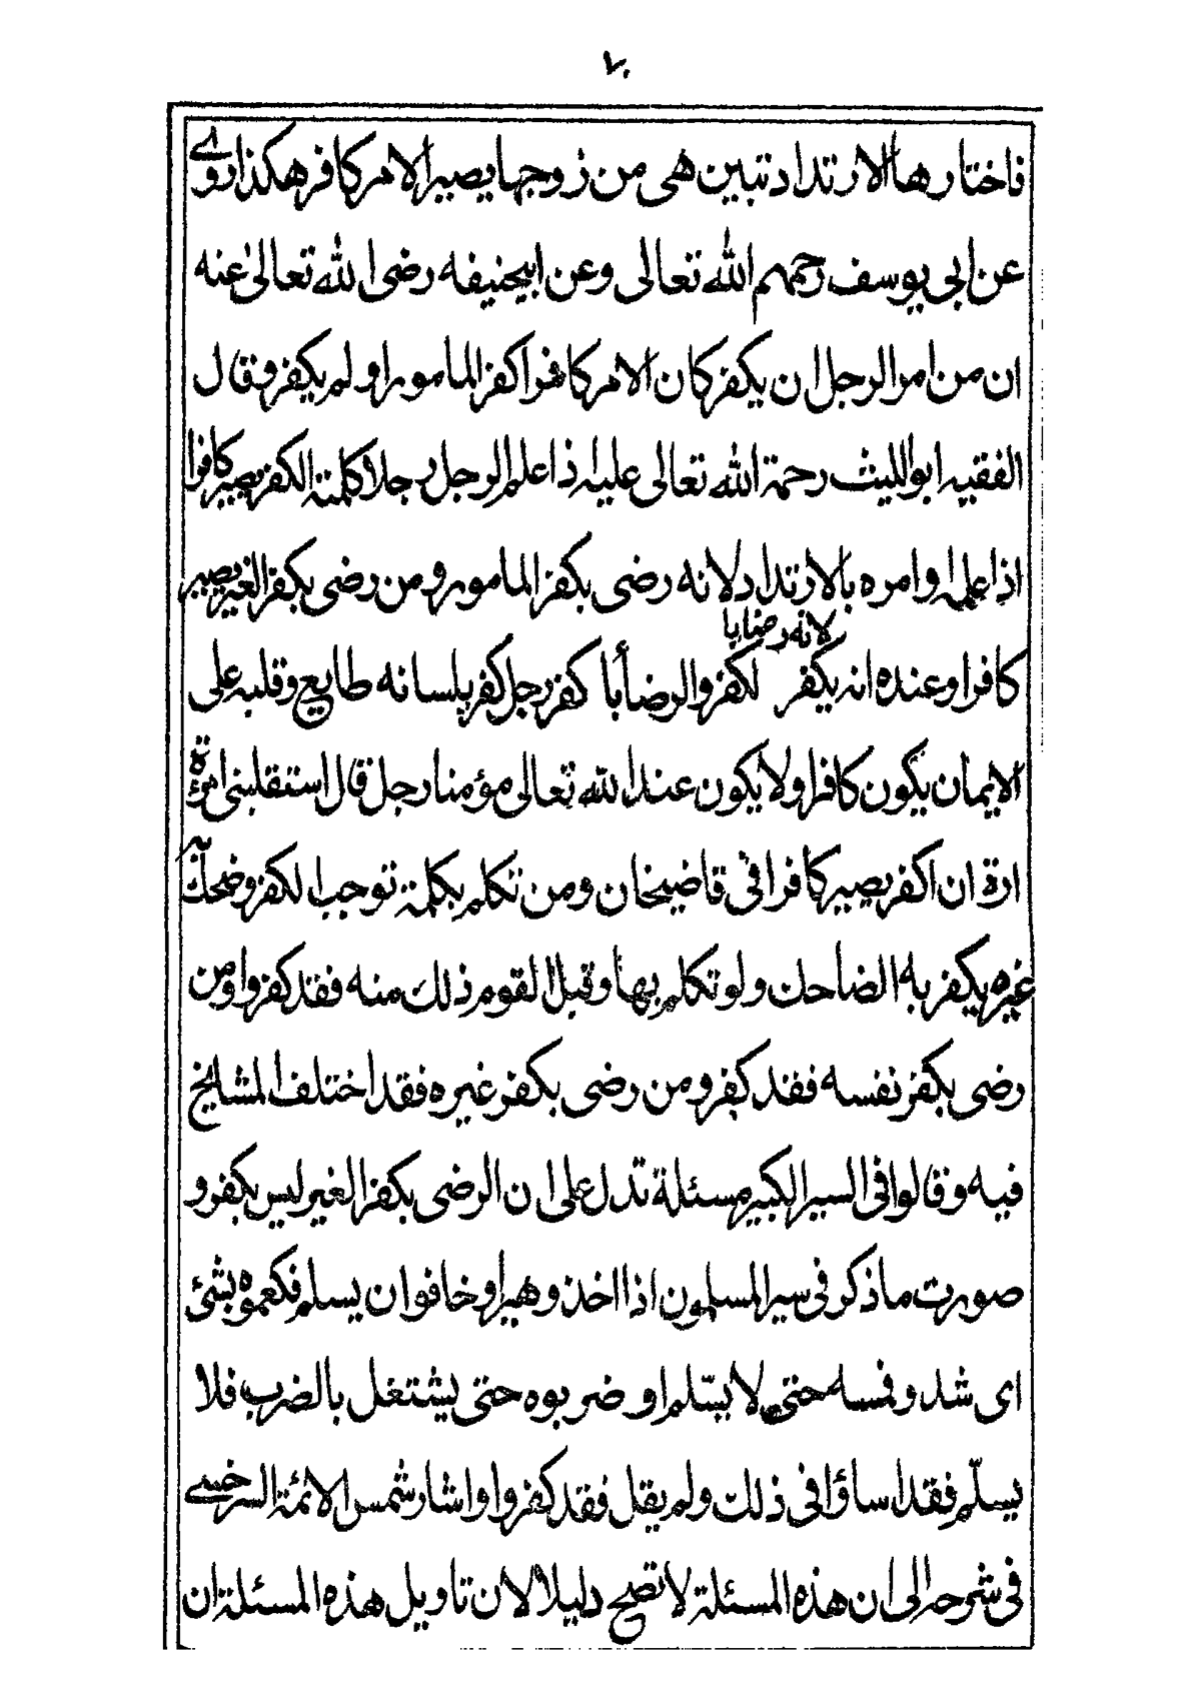 ٧٠
فاختارها الارتداد تبين هى من زوجها يصير الامر كافر هكذا روى
عن ابى يوسف رحمهم الله تعالى وعن ابيحنيفه رضى الله تعالىٰ عنه
ان من امر الرجل ان يكفر كان الامر كافرا كفر المامور او لم يكفر وقال
الفقيه ابو الليث رحمة الله تعالى عليه اذا علم الرجل رجلا كلمة الكفر يصير كافرا
اذا علمه او امره بالارتداد لانه رضى بكفر المامور ومن رضى بكفر الغير يصير
لانه رضا با
كافرا وعنده انه يكفر لكفر والرضا با كفر رجل كفر بلسانه طايع وقلبه على
الايمان يكون كافرا ولا يكون عند الله تعالى مؤمنا رجل قال استقلبنى امرءة
ارة ان اكفر يصير كافرا فى قاضيخان ومن تكلم بكلمة توجب الكفر وضحك به
غيره يكفر به الضاحك ولو تكلم بها وقبل القوم ذلك منه فقد كفروا ومن
رضى بكفر نفسه فقد كفر ومن رضى بكفر غيره فقد اختلف المشايخ
فيه وقالوا فى السير الكبير مسئلة تدل على ان الرضى بكفر الغير ليس بكفر و
صورت ما ذكر فى سير المسلمون اذا اخذوهيرا وخافوا ان يسلم فكعموه بشئ
اى شدوفمسه حتى لا يسّلم او ضربوه حتى يشتغل بالضرب فلا
يسلّم فقد اساؤا فى ذلك ولم يقل فقد كفروا واشار شمس الائمة السرخسے
فى شرحه الى ان هذه المسئلة لا تصح دليلا لان تاويل هذه المسئلة ان